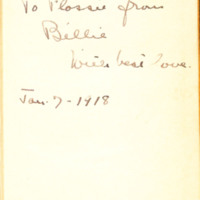 To Flossie from
Billie
With best love.
Jan. 7 - 1918